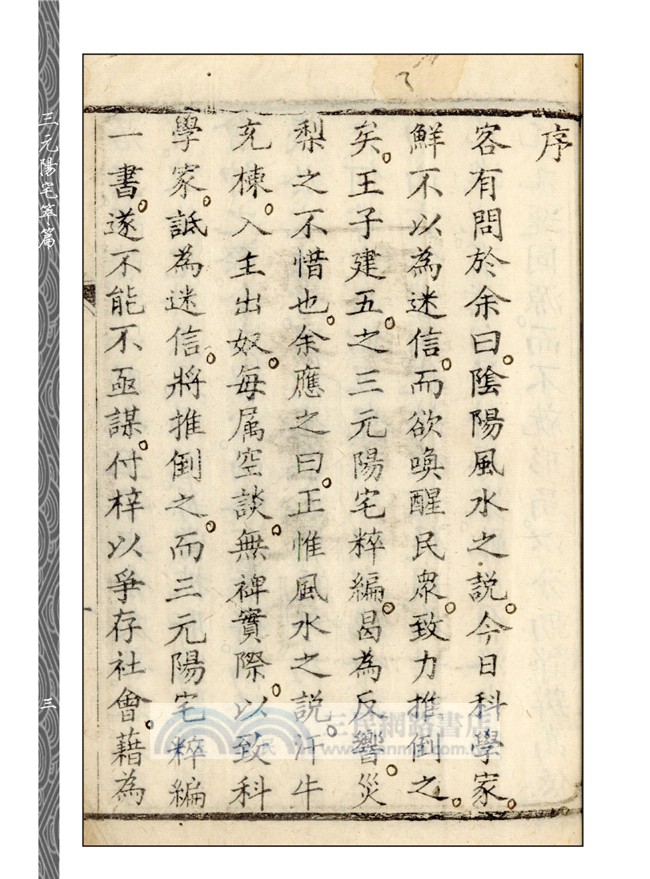 序
客有問於余曰。陰陽風水之説。今日科學家。
鮮不以為迷信。而欲喚醒民眾。致力推倒之。
矣。王子建五。之三元陽宅粹編。曷為反響災
梨之不惜也。余應之曰。正惟風水之説。汗牛
充棟。入主出奴。每属空談。無裨實際。以致科
學家。詆為迷信。將推倒之。而三元陽宅粹編
一書。遂不能不亟謀。付梓以爭存社會。藉為
三元陽宅萃篇
三
三民網路書店